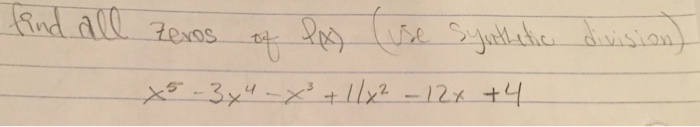 find all zeros of P(x) (use synthetic division)
x⁵ - 3x⁴ - x³ + 11x² - 12x + 4